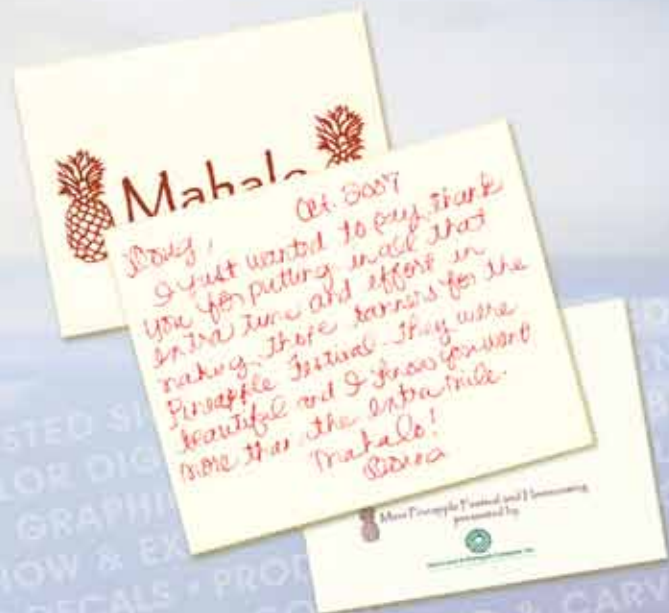 Mahalo
Oct. 2007
Doug,
I just wanted to say thank
you for putting in all that
extra time and effort in
making those banners for the
Pineapple Festival. They were
beautiful and I know you went
more than the extra mile.
Mahalo!
Donna
Maui Pineapple Festival and Homecoming
presented by
STED SI
LOR DIG
GRAPHI
OW & EX
DECALS • PROD
& CARV